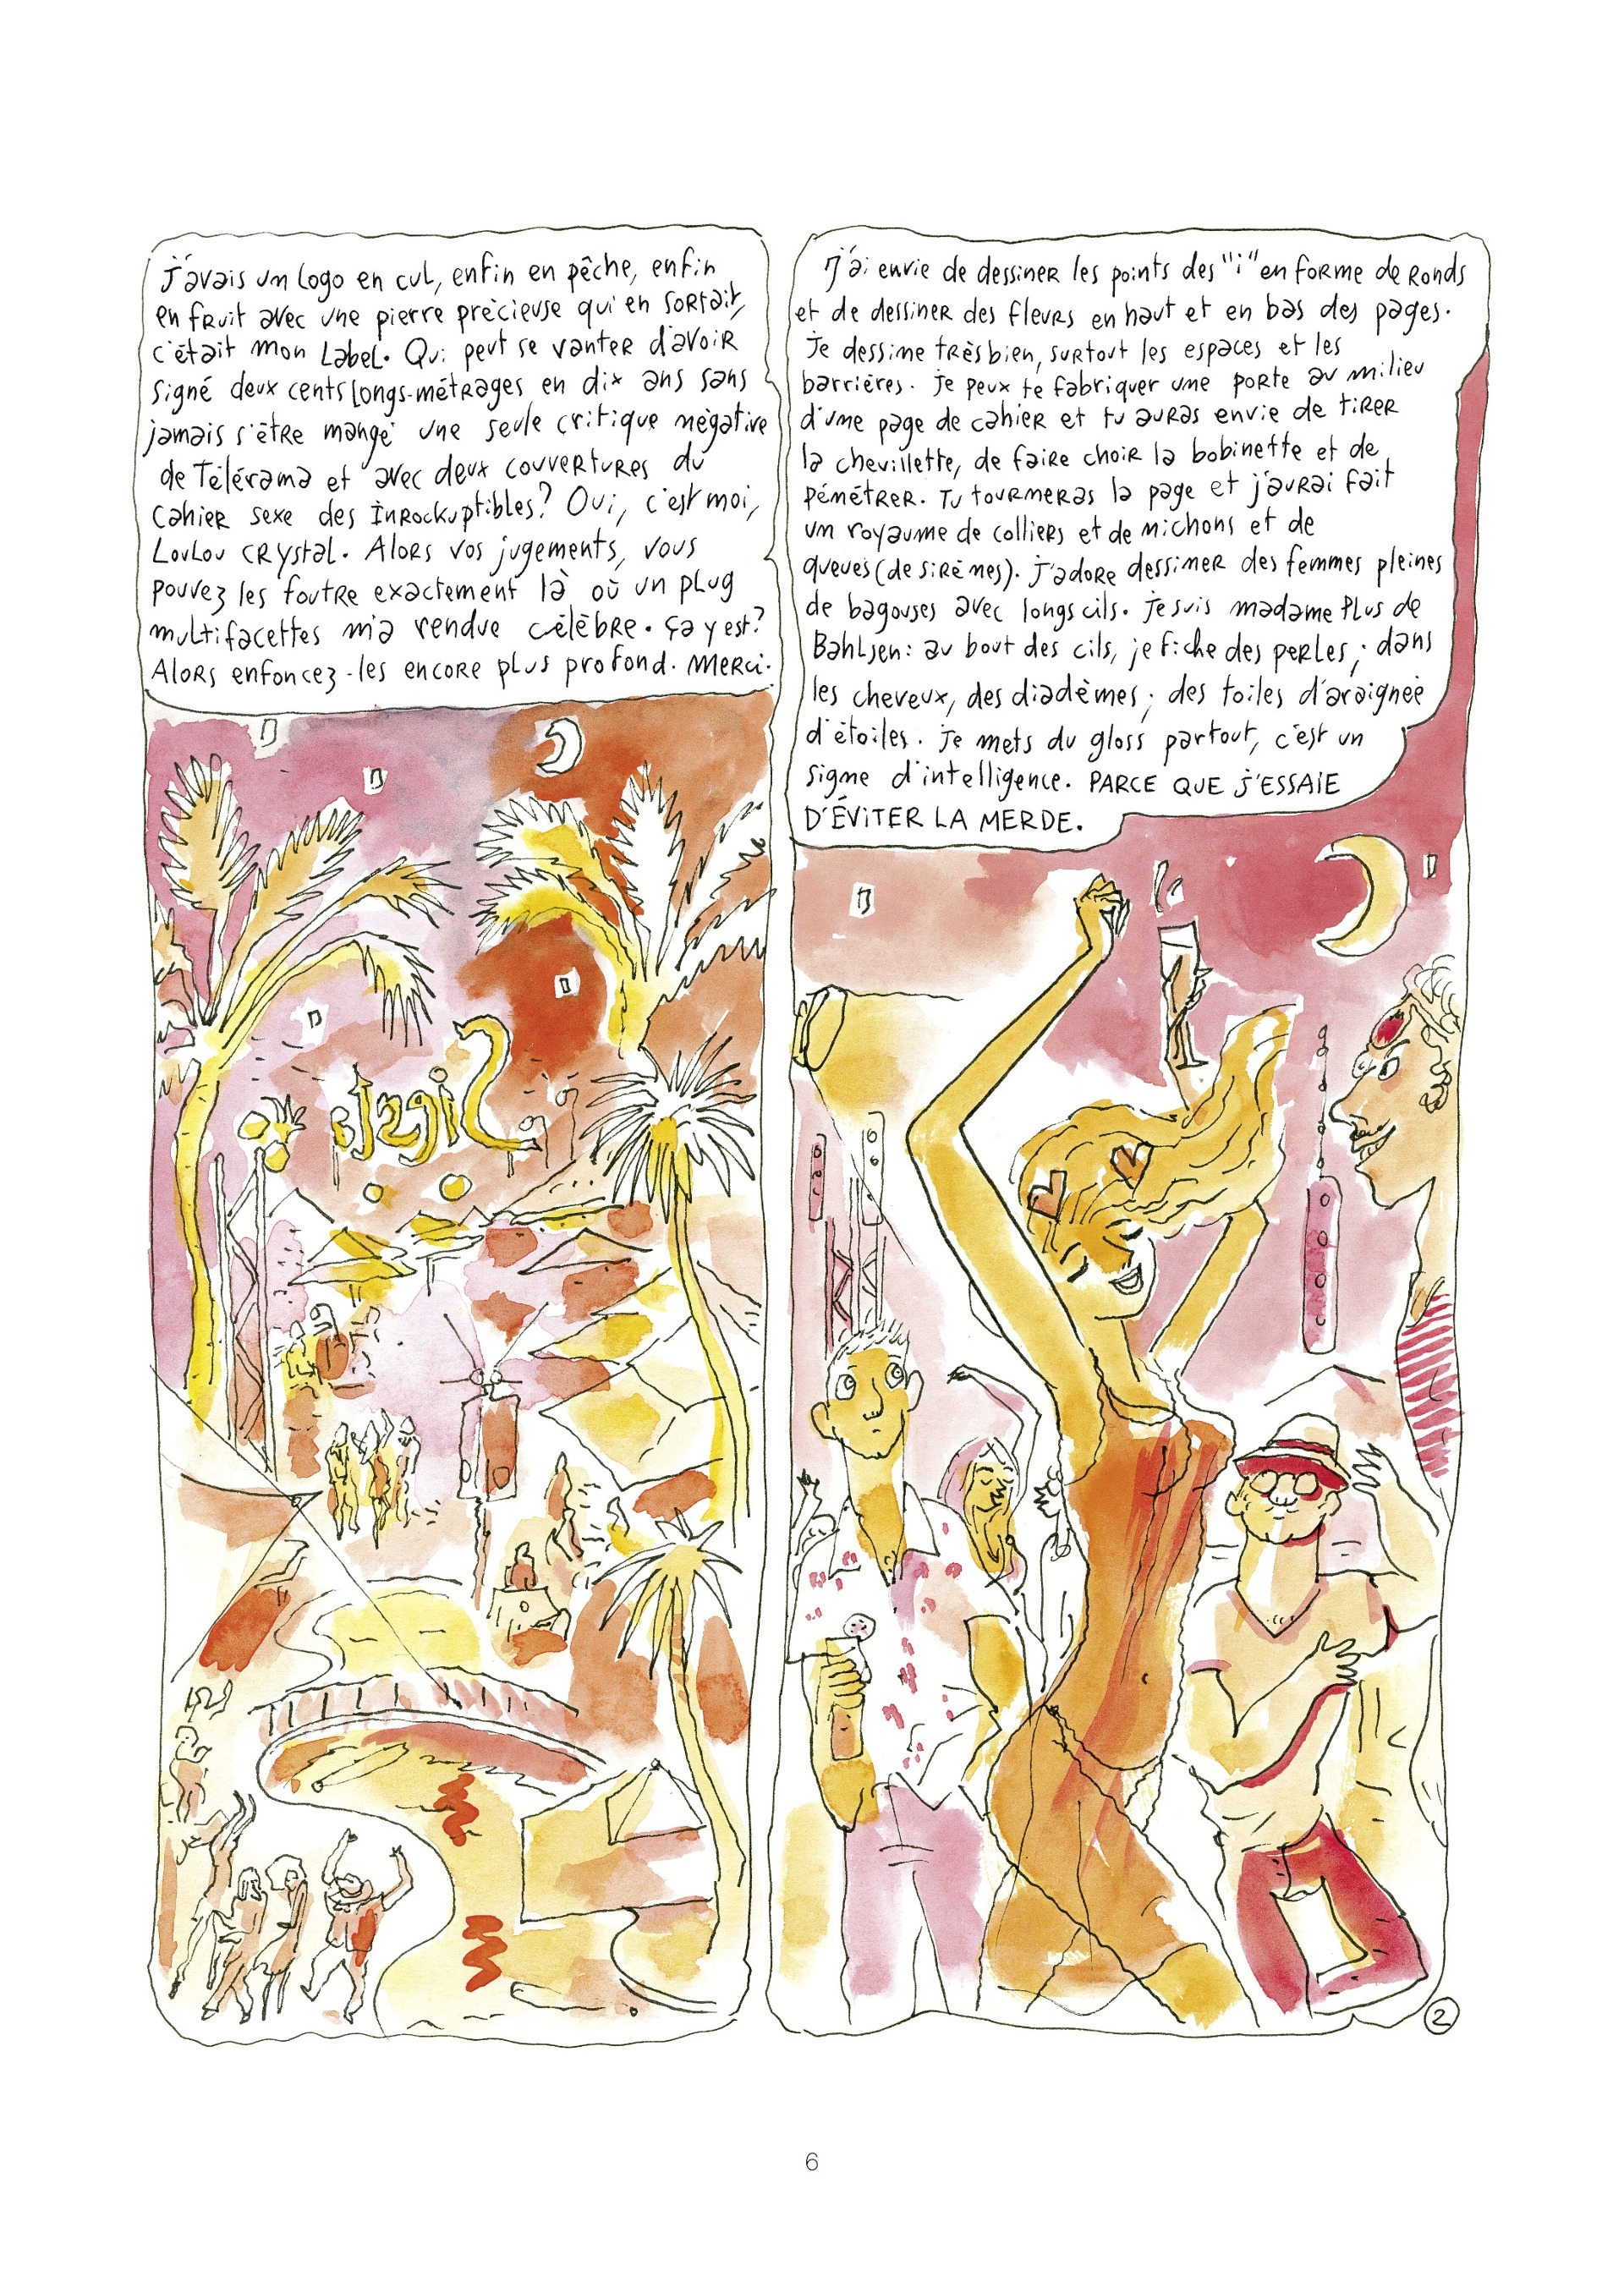 J'avais un logo en cul, enfin en pêche, enfin
en fruit avec une pierre précieuse qui en sortait,
c'était mon Label. Qui peut se vanter d'avoir
signé deux cents longs-métrages en dix ans sans
jamais s'être mangé une seule critique négative
de Télérama et avec deux couvertures du
Cahier sexe des Inrockuptibles? Oui, c'est moi,
Loulou Crystal. Alors vos jugements, vous
pouvez les foutre exactement là où un plug
multifacettes m'a rendue célèbre. Ça y est?
Alors enfoncez-les encore plus profond. Merci.
J'ai envie de dessiner les points des "i" en forme de ronds
et de dessiner des fleurs en haut et en bas des pages.
Je dessine très bien, surtout les espaces et les
barrières. Je peux te fabriquer une porte au milieu
d'une page de cahier et tu auras envie de tirer
la chevillette, de faire choir la bobinette et de
pénétrer. Tu tourneras la page et j'aurai fait
un royaume de colliers et de nichons et de
queues (de sirènes). J'adore dessiner des femmes pleines
de bagouses avec longs cils. Je suis madame Plus de
Bahlsen: au bout des cils, je fiche des perles; dans
les cheveux, des diadèmes; des toiles d'araignée
d'étoiles. Je mets du gloss partout, c'est un
signe d'intelligence. PARCE QUE J'ESSAIE
D'ÉVITER LA MERDE.
2
6